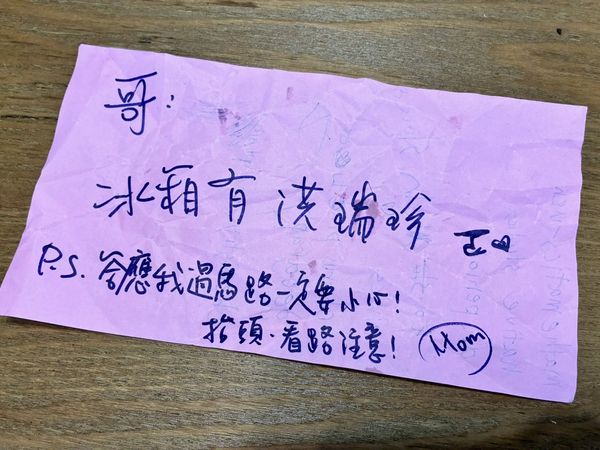 哥:
冰箱有洪瑞珍
P.S. 答應我過馬路一定要小心!
抬頭.看路注意!
Mom